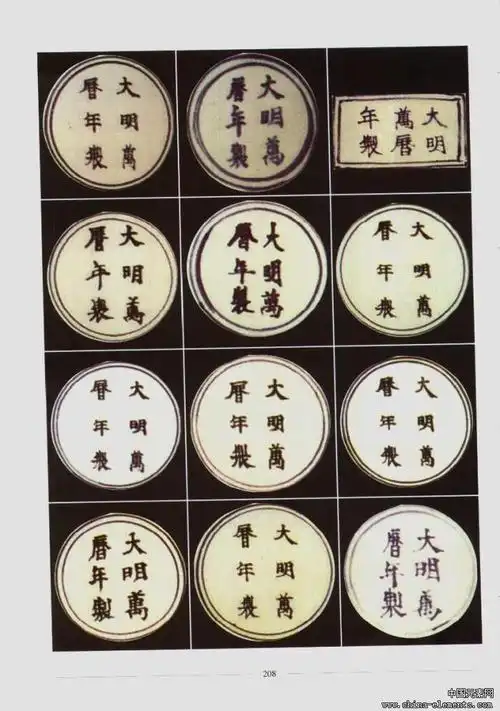 大明萬
曆年製
大明萬
曆年製
大明
萬曆
年製
大明萬
曆年製
大明萬
曆年製
大明萬
曆年製
大明萬
曆年製
大明萬
曆年製
大明萬
曆年製
大明萬
曆年製
大明萬
曆年製
大明萬
曆年製
208
中国元素网
www.china-elements.com